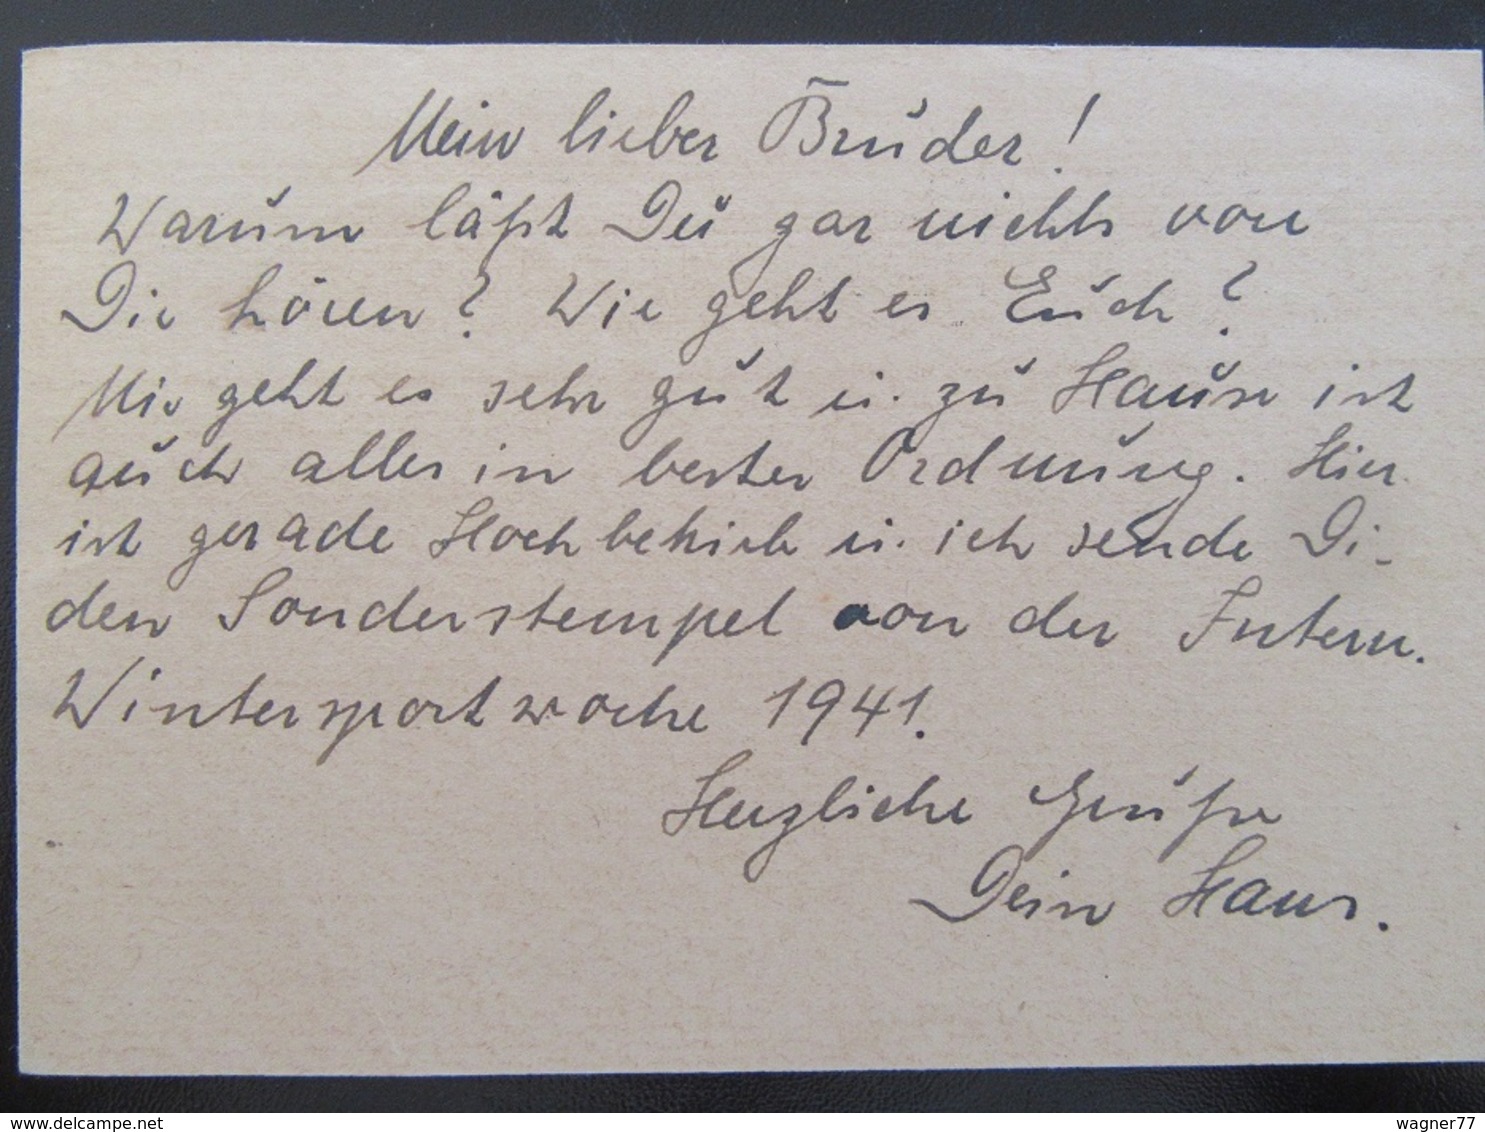 Mein lieber Bruder!
Warum läßt Du gar nichts von
Dir hören? Wie geht es Euch?
Mir geht es sehr gut u. zu Hause ist
auch alles in bester Ordnung. Hier
ist gerade Hochbetrieb u. ich sende Dir
den Sonderstempel von der Intern.
Wintersportwoche 1941.
Herzliche Grüße
Dein Hans.
www.delcampe.net
wagner77